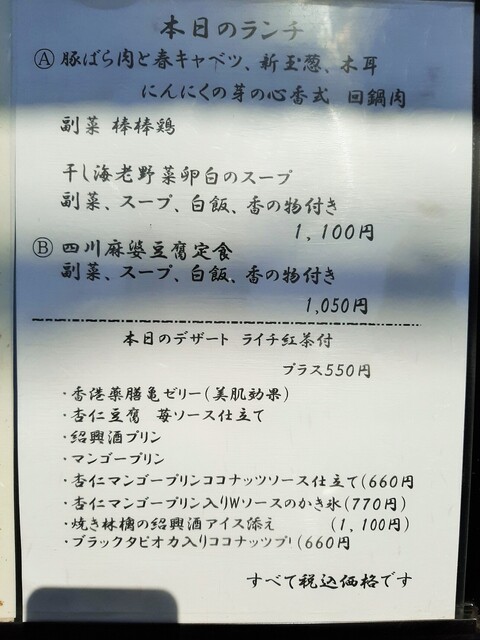 本日のランチ
Ⓐ 豚ばら肉と春キャベツ、新玉葱、木耳
にんにくの芽の心香式 回鍋肉
副菜 棒棒鶏
干し海老野菜卵白のスープ
副菜、スープ、白飯、香の物付き
1,100円
Ⓑ 四川麻婆豆腐定食
副菜、スープ、白飯、香の物付き
1,050円
本日のデザート ライチ紅茶付
プラス550円
・香港薬膳亀ゼリー(美肌効果)
・杏仁豆腐 苺ソース仕立て
・紹興酒プリン
・マンゴープリン
・杏仁マンゴープリンココナッツソース仕立て(660円
・杏仁マンゴープリン入りWソースのかき氷(770円)
・焼き林檎の紹興酒アイス添え (1,100円)
・ブラックタピオカ入りココナッツプリ(660円
すべて税込価格です